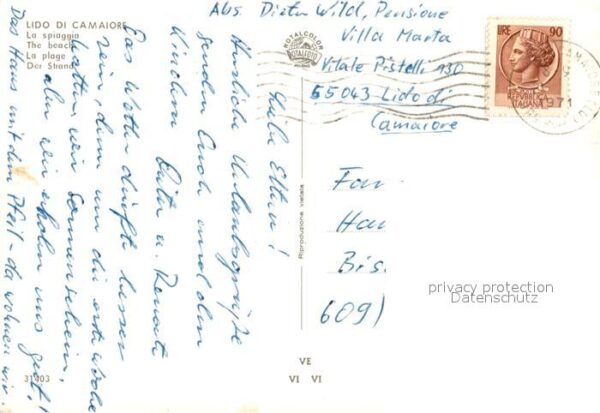 LIDO DI CAMAIORE
La spiaggia
The beach
La plage
Der Strand
TOTALCOLOR
FOTO
Abs. Dieter Wild, Pensione
Villa Marta
Vitale Pistelli 130
55043 Lido di
Camaiore
LIRE 90
ITALIANA
1971
Liebe Eltern!
Herzliche Urlaubsgrüße
senden Euch und den
Kindern
Dieter u. Renate
Das Wetter dürfte besser
sein, denn um die erste Woche
hatten wir Sonnenschein,
aber wir erholen uns gut!
Das Haus mit dem Pfeil - da wohnen wir.
Riproduzione vietata
Fam
Han
Bis.
6091
privacy protection
Datenschutz
31403
VE
VI VI